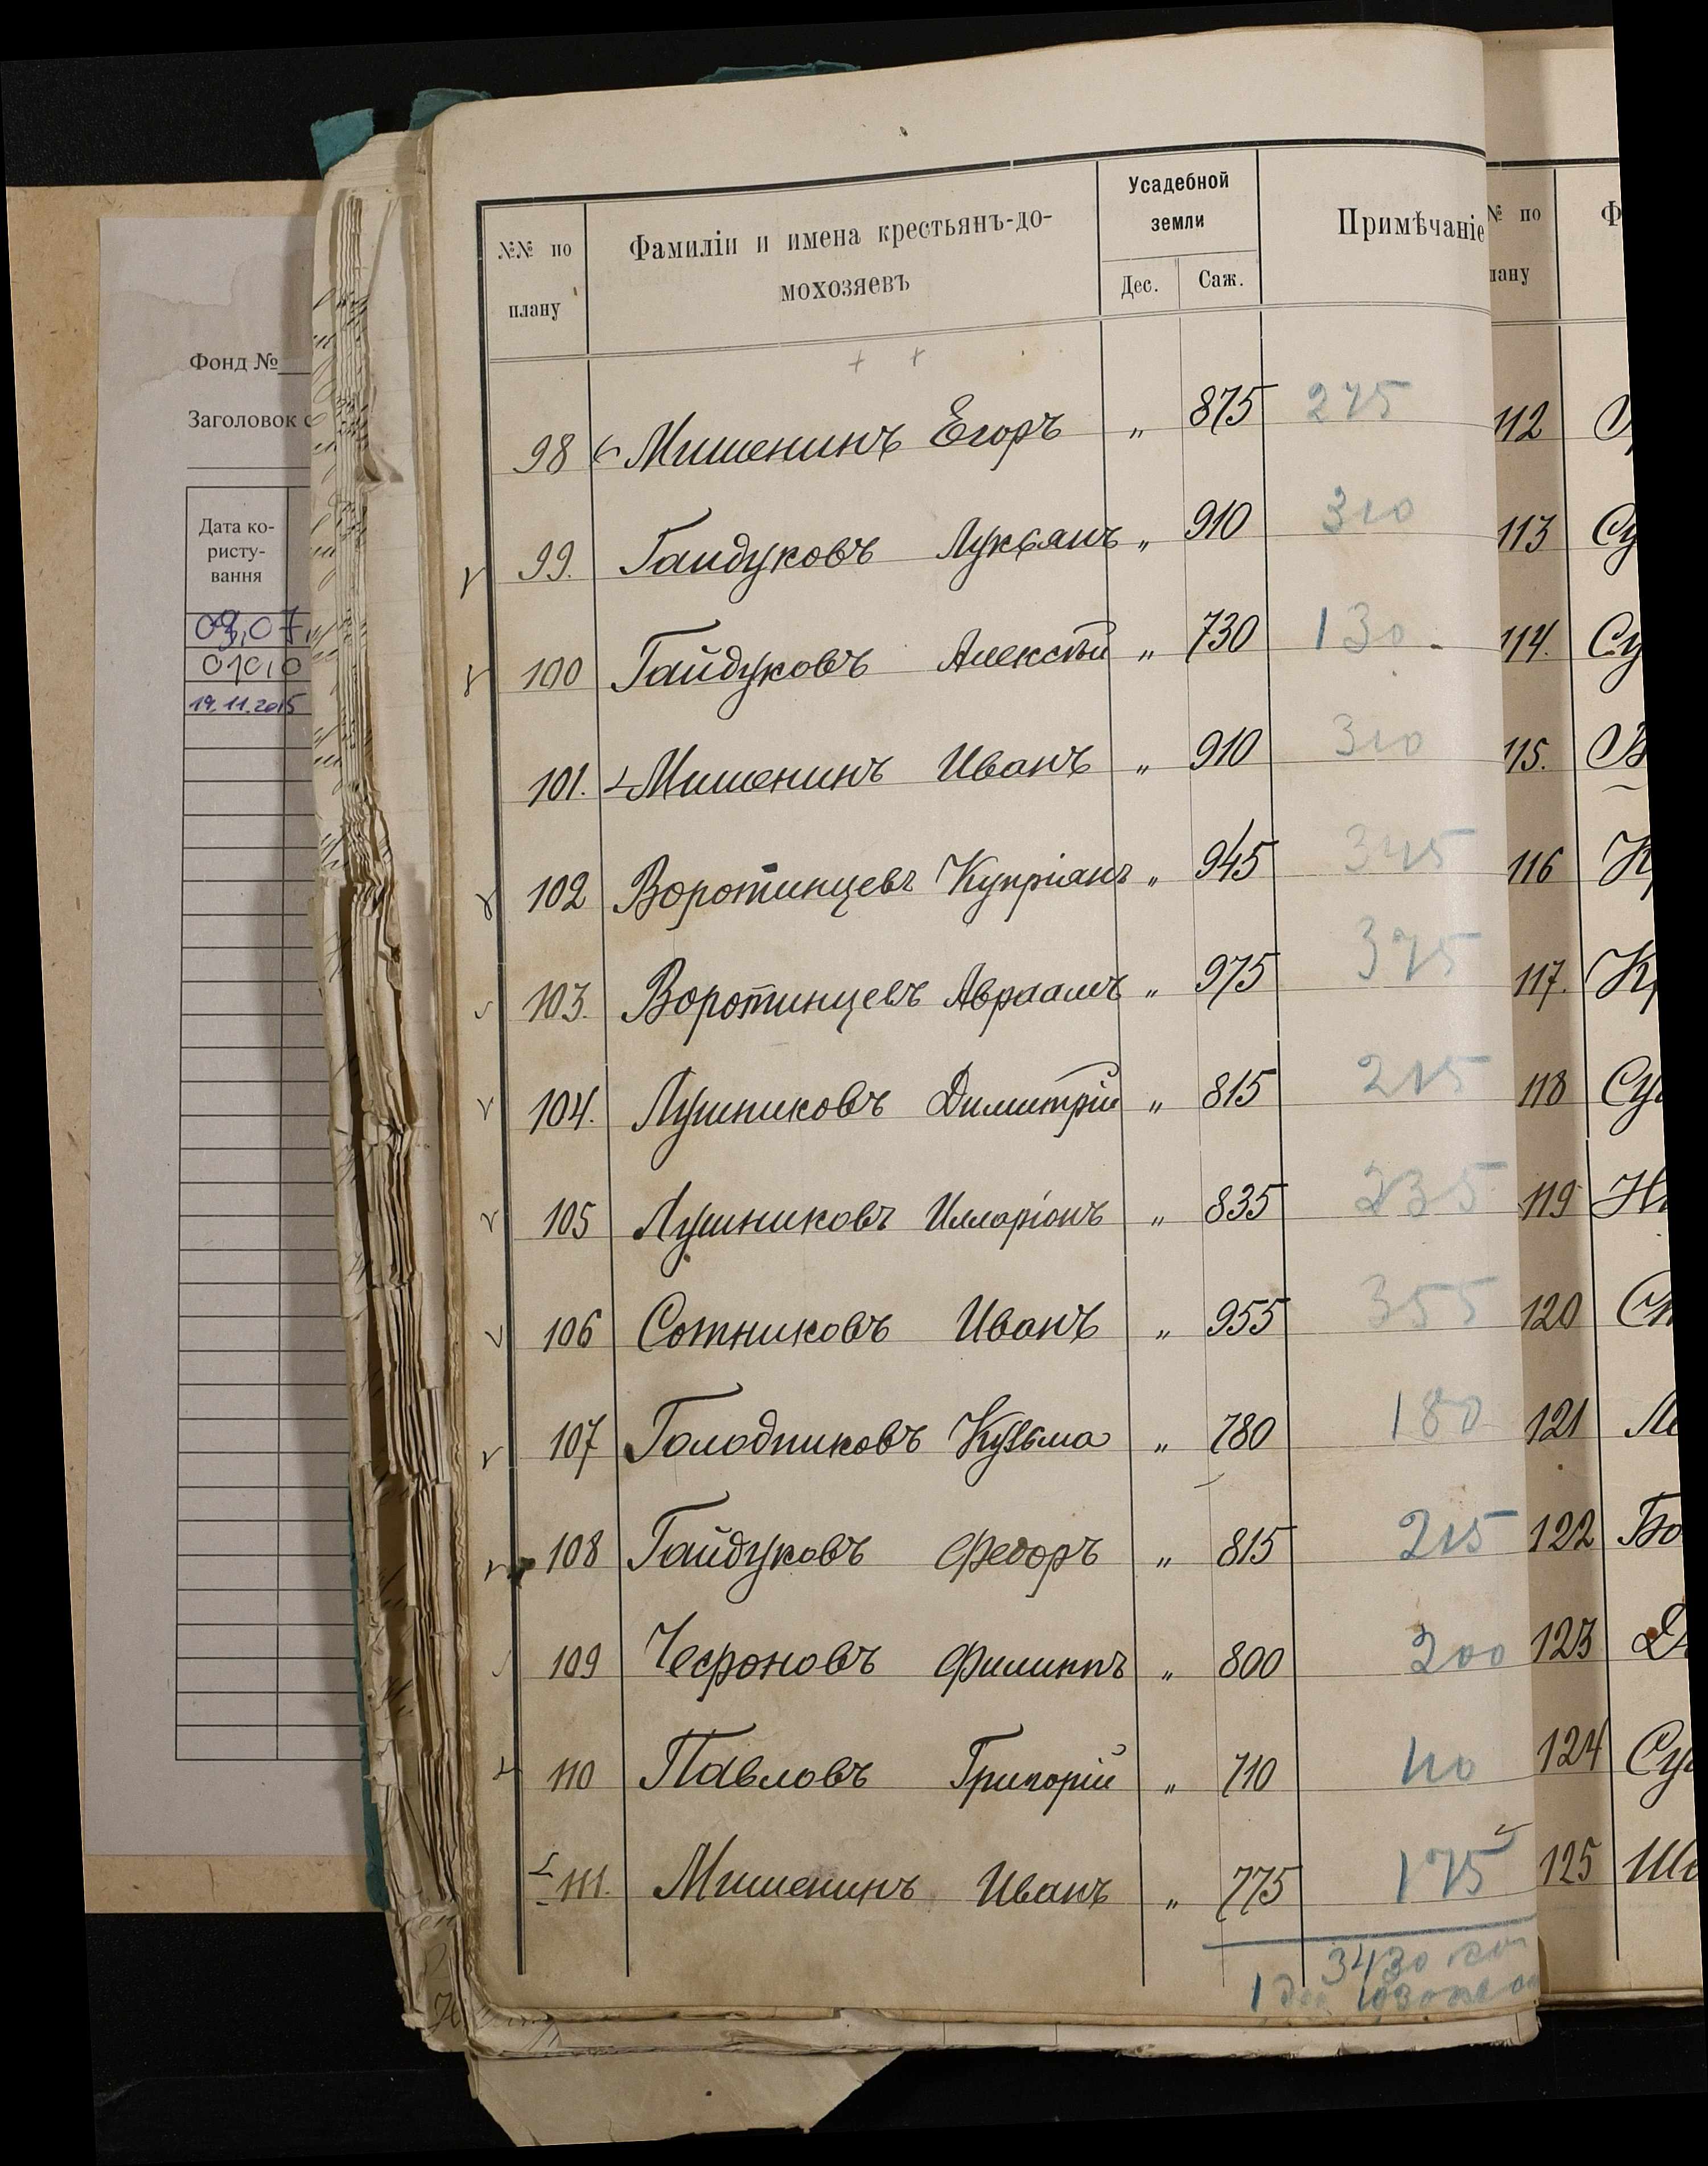 Фонд №
Заголовок с
Дата ко-
ристу-
вання
09.07.
01.0.0
19.11.2015
№№ по плану
Фамиліи и имена крестьянъ-до-
мохозяевъ
Усадебной
земли
Дес. Саж.
Примѣчаніе
98 Мишенинъ Егоръ „ 875 275
99. Гайдуковъ Лукьянъ „ 910 310
100 Гайдуковъ Алексѣй „ 730 130
101. Мишенинъ Иванъ „ 910 310
102 Воротинцевъ Купріанъ „ 945 345
103. Воротинцевъ Авраамъ „ 975 375
104. Лушниковъ Димитрій „ 815 215
105 Лушниковъ Илларіонъ „ 835 235
106 Сотниковъ Иванъ „ 955 355
107 Голодниковъ Кузьма „ 780 180
108 Гайдуковъ Федоръ „ 815 215
109 Чефоновъ Филиппъ „ 800 200
110 Павловъ Григорій „ 710 110
111. Мишенинъ Иванъ „ 775 175
3430
1 дес 1030
№ по
лану
Ф
112
113 Су
114. Су
115. В
116 К
117. Кр
118 Су
119 Ни
120 Сп
121
122 Бо
123 Д
124 Су
125 Ше